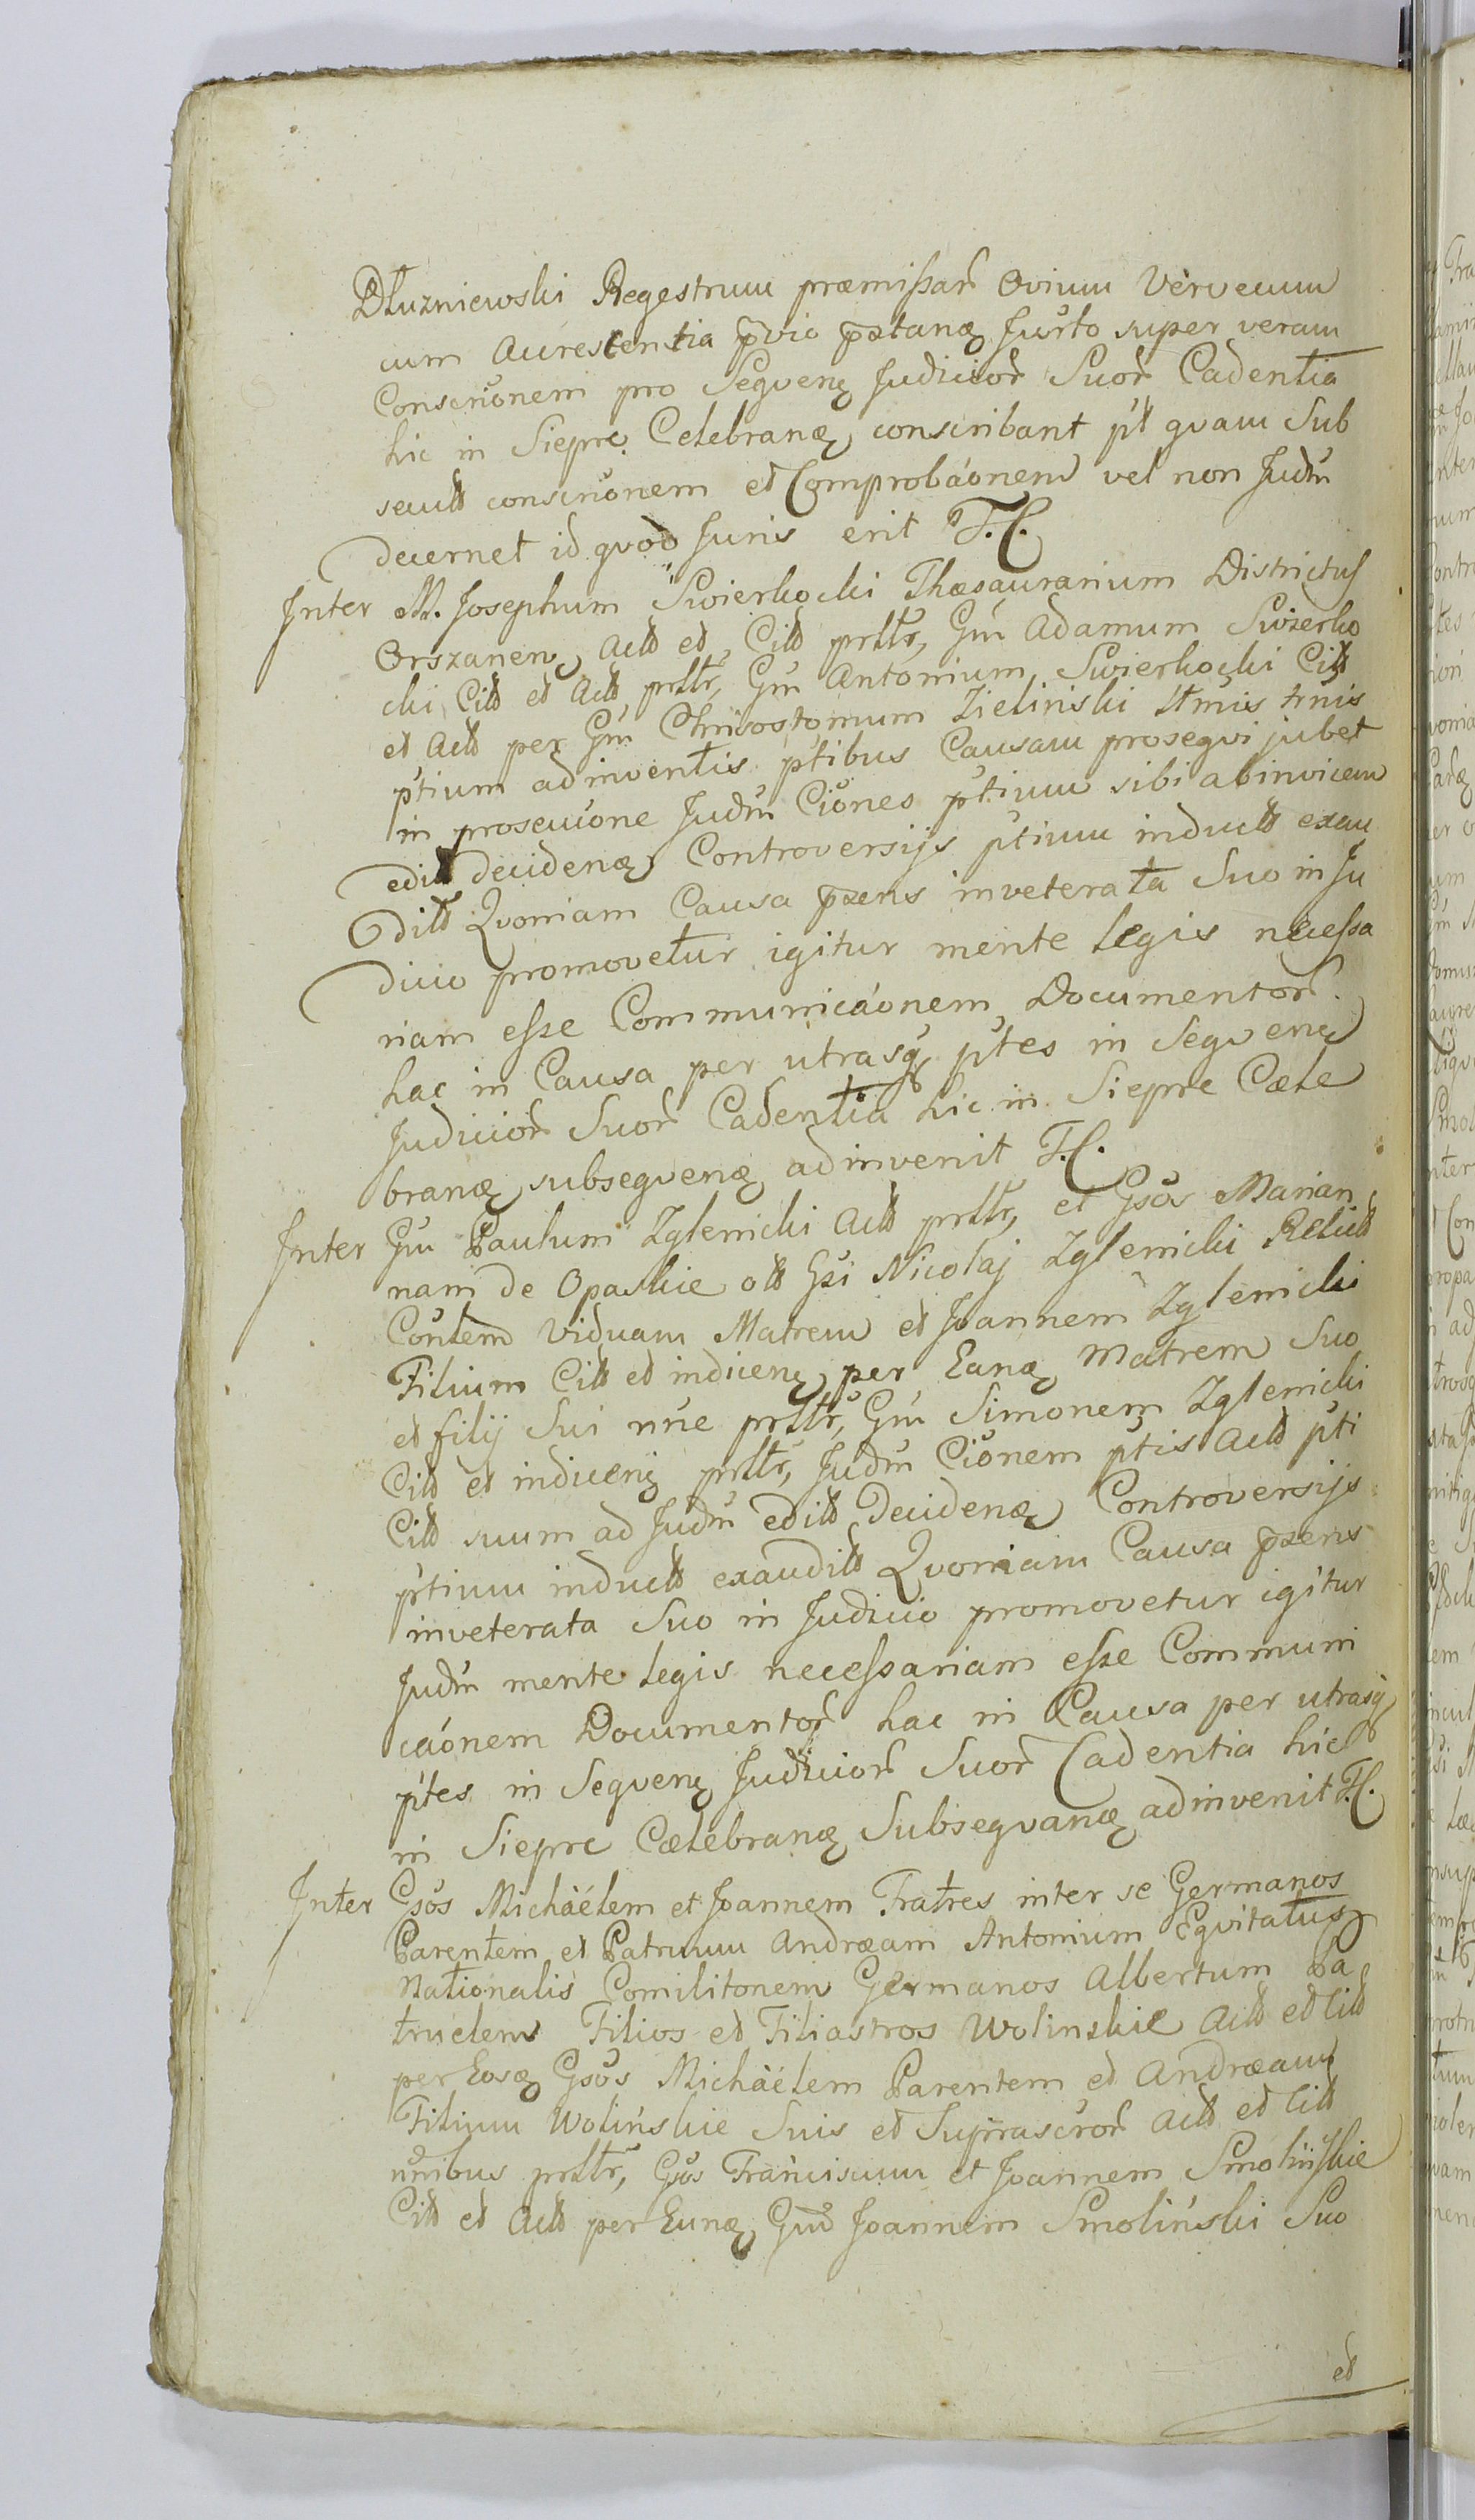 Dłuzniewski Regestrum præmissar Ovium Vervecum
cum Aurescentia pvio pstanæ Jurto super veram
Conscrionem pro Seqvenę Judicior Suor Cadentia
hic in Siepre Celebranę conscribant pt qvam Sub
secutt conscrionem et Comprobaonem vel non Judm
decernet id qvod Juris erit T.C.
Inter M. Josephum Swierkocki Thæsaurarium Districtus
Orszanen, Actt et Citt prttr, Gm Adamum Swierko
cki Citt et Actt prttr, Gm Antonium Swierkocki Citt
et Actt per Gm Chrisostomum Zielinski ttmis tmis
ptium adinventis ptibus Causam proseqvi jubet
in prosecuone Judm Ciones ptium sibi abinvicem
editt decidenę Controversijs ptium inductt exau
ditt Qvoniam Causa pzens inveterata Suo in Ju
dicio promovetur igitur mente legis necessa
riam esse Communicaonem Documentor
hac in Causa per utrasq ptes in Seqvenę
Judicior Suor Cadentia hic in Siepre Cæle
branę subseqvenę adinvenit T.C.
Inter Gm Paulum Zglenicki Actt prttr, et Gsos Marian
nam de Opaskie ott Gsi Nicolaj Zglenicki Relictt
Contem Viduam Matrem et Joannem Zglenicki
Filium Citt et indicenę per Eanę Matrem Suo
et filij Sui nne prttr, Gm Simonem Zglenicki
Citt et indicenę prttr, Judm Cionem ptis Actt pti
Citt suum ad Judm editt Decidenę Controversijs
ptium inductt exauditt Qvoniam Causa pzens
inveterata Suo in Judicio promovetur igitur
Judm mente legis necessariam esse Communi
caonem Documentor hac in Causa per utrasq
ptes in Seqvenę Judicior Suor Cadentia hic
in Siepre Cælebranę Subseqvanę adinvenit T.C.
Inter Gsos Michäélem et Joannem Fratres inter se Germanos
Parentem et Patruum Andræam Antonium Eqvitatus
Nationalis Comilitonem Germanos Albertum Pa
truelem Filios et Filiastros Wolinskie Actt et Citt
per Eosę Gsos Michäélem Parentem et Andræam
Filium Wolińskie Suis et Suprascror Actt et Citt
nnibus prttr, Gsos Franciscum et Joannem Smolińskie
Citt et Actt per Eunę Gm Joannem Smoliński Suo
et